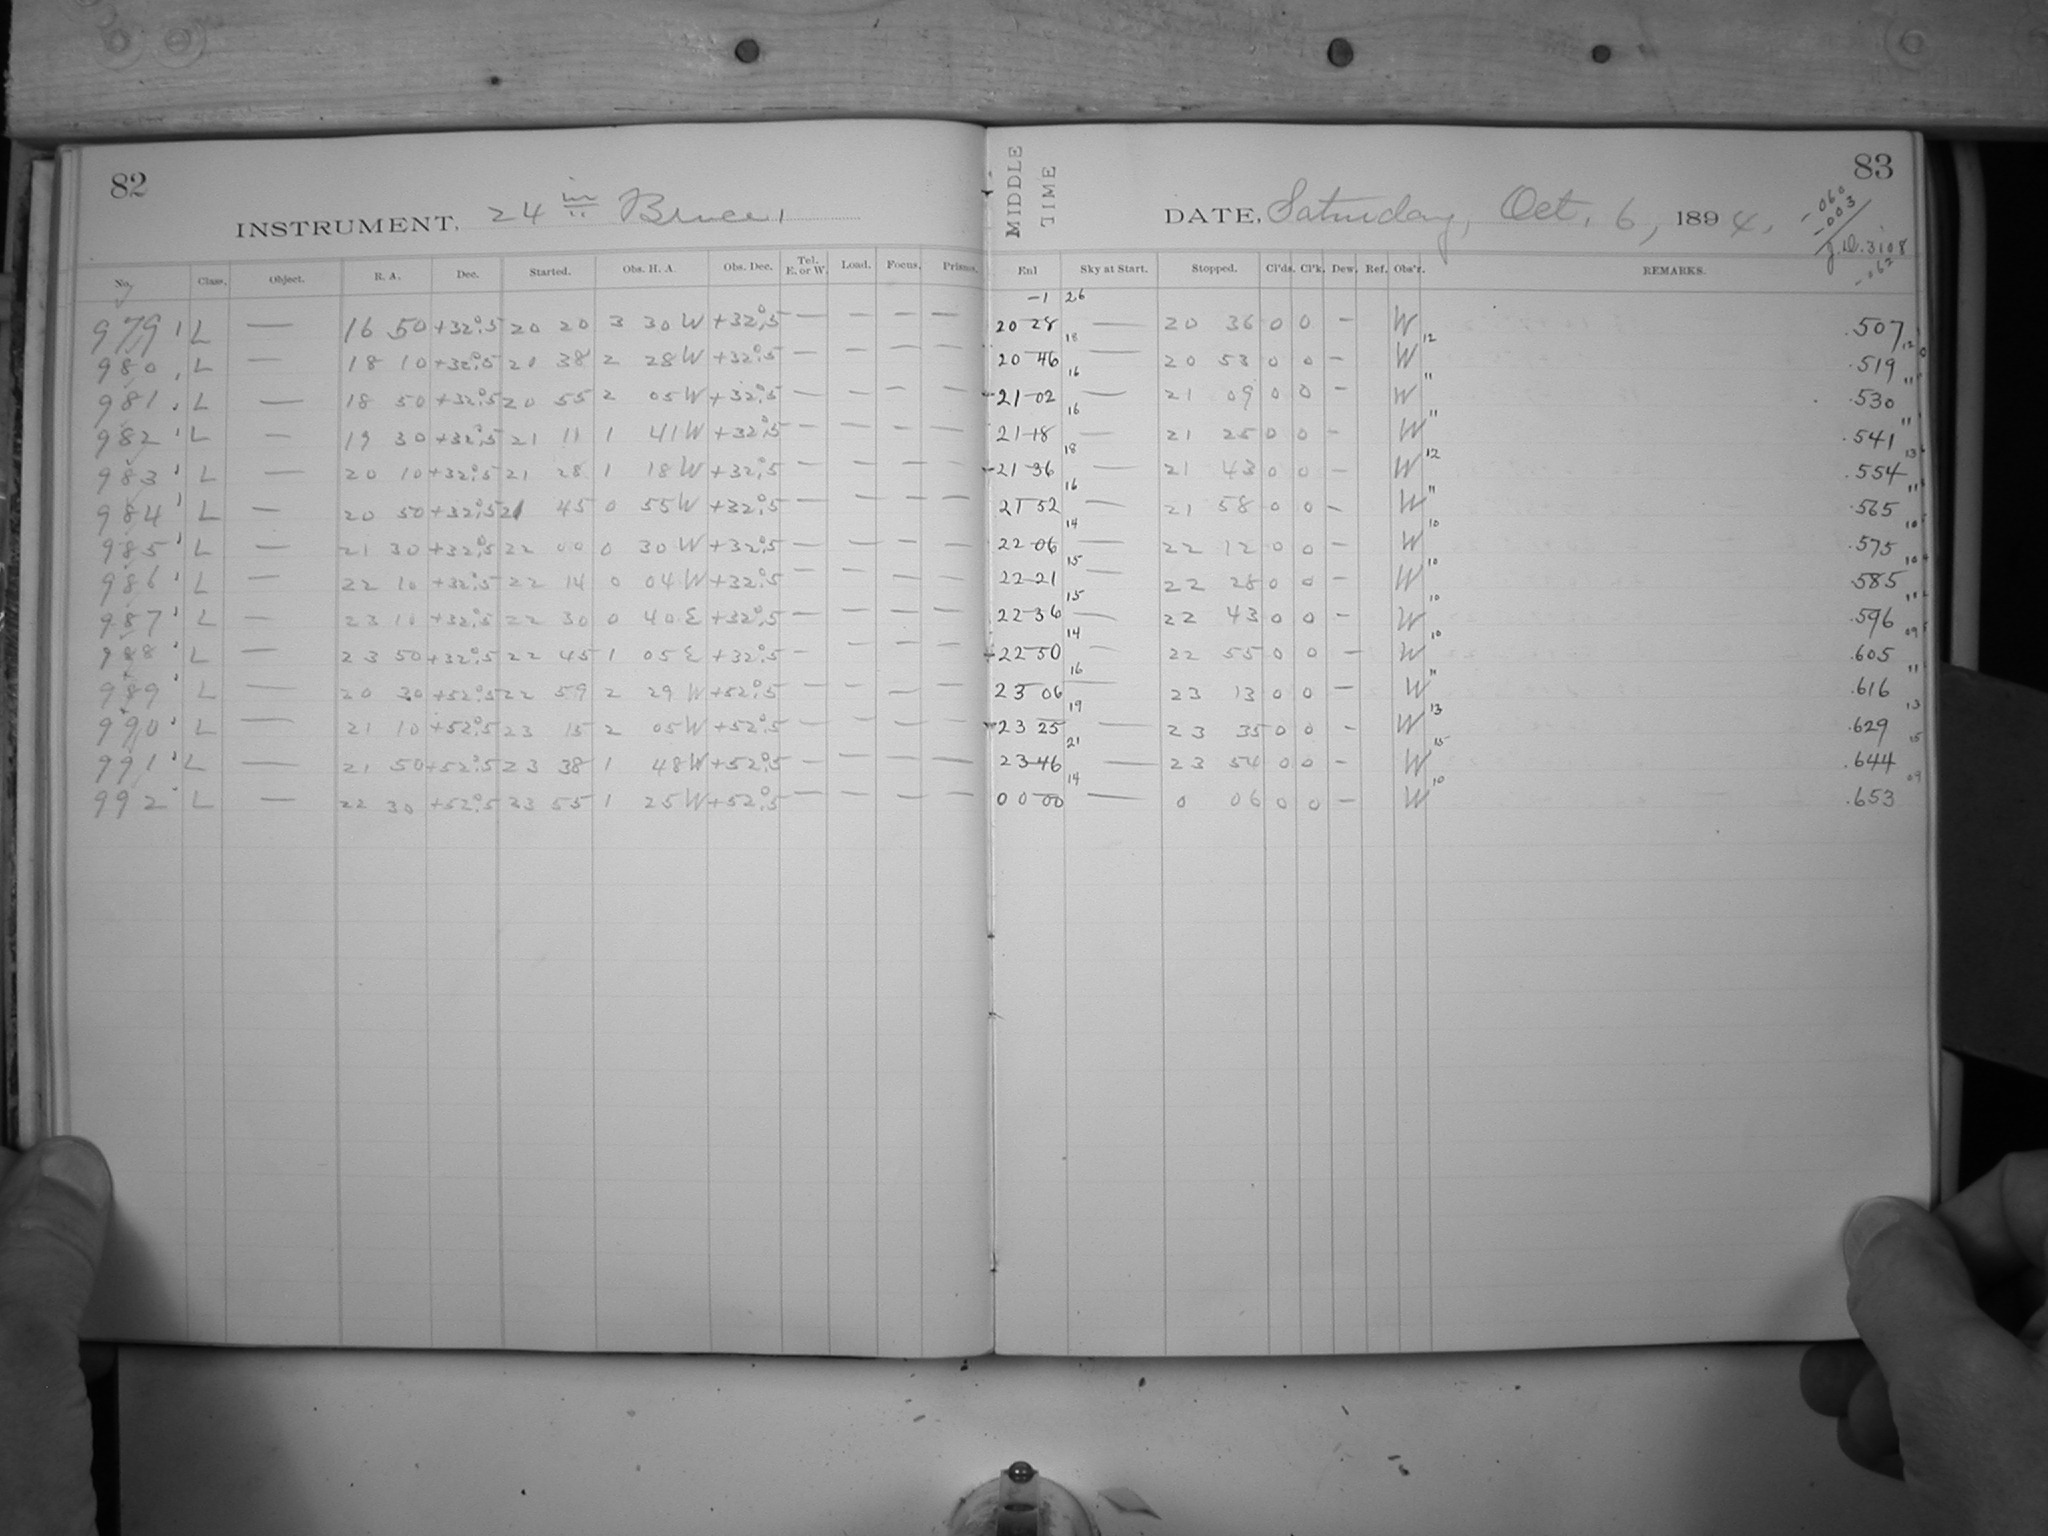 82
INSTRUMENT, 24 in Bruce,
No. Class. Object. R. A. Dec. Started. Obs. H. A. Obs. Dec. Tel. E. or W. Load. Focus. Prisms.
979 L — 16 50 +32°.5 20 20 3 30 W +32°.5 — — — —
980 L — 18 10 +32°.5 20 38 2 28 W +32°.5 — — — —
981 L — 18 50 +32°.5 20 55 2 05 W +32°.5 — — — —
982 L — 19 30 +32°.5 21 11 1 41 W +32°.5 — — — —
983 L — 20 10 +32°.5 21 28 1 18 W +32°.5 — — — —
984 L — 20 50 +32°.5 21 45 0 55 W +32°.5 — — — —
985 L — 21 30 +32°.5 22 00 0 30 W +32°.5 — — — —
986 L — 22 10 +32°.5 22 14 0 04 W +32°.5 — — — —
987 L — 23 10 +32°.5 22 30 0 40 E +32°.5 — — — —
988 L — 23 50 +32°.5 22 45 1 05 E +32°.5 — — — —
989 L — 20 30 +52°.5 22 59 2 29 W +52°.5 — — — —
990 L — 21 10 +52°.5 23 15 2 05 W +52°.5 — — — —
991 L — 21 50 +52°.5 23 38 1 48 W +52°.5 — — — —
992 L — 22 30 +52°.5 23 55 1 25 W +52°.5 — — — —
83
MIDDLE
TIME
DATE, Saturday, Oct. 6, 1894.
-.060
-.003
J.D. 3108
-.062
Enl Sky at Start. Stopped. Cl'ds. Cl'k. Dew. Ref. Obs'r. REMARKS.
-1 26
20 28 — 20 36 0 0 — W .507
18 12 12
20 46 — 20 53 0 0 — W .519
16 " "
21 02 — 21 09 0 0 — W .530
16 " "
21 18 — 21 25 0 0 — W .541
18 12 13
21 36 — 21 43 0 0 — W .554
16 " "
21 52 — 21 58 0 0 — W .565
14 10 10
22 06 — 22 12 0 0 — W .575
15 10 10
22 21 — 22 28 0 0 — W .585
15 10 "
22 36 — 22 43 0 0 — W .596
14 10 09
22 50 — 22 55 0 0 — W .605
16 " "
23 06 — 23 13 0 0 — W .616
19 13 13
23 25 — 23 35 0 0 — W .629
21 15 15
23 46 — 23 54 0 0 — W .644
14 10 09
00 00 — 0 06 0 0 — W .653